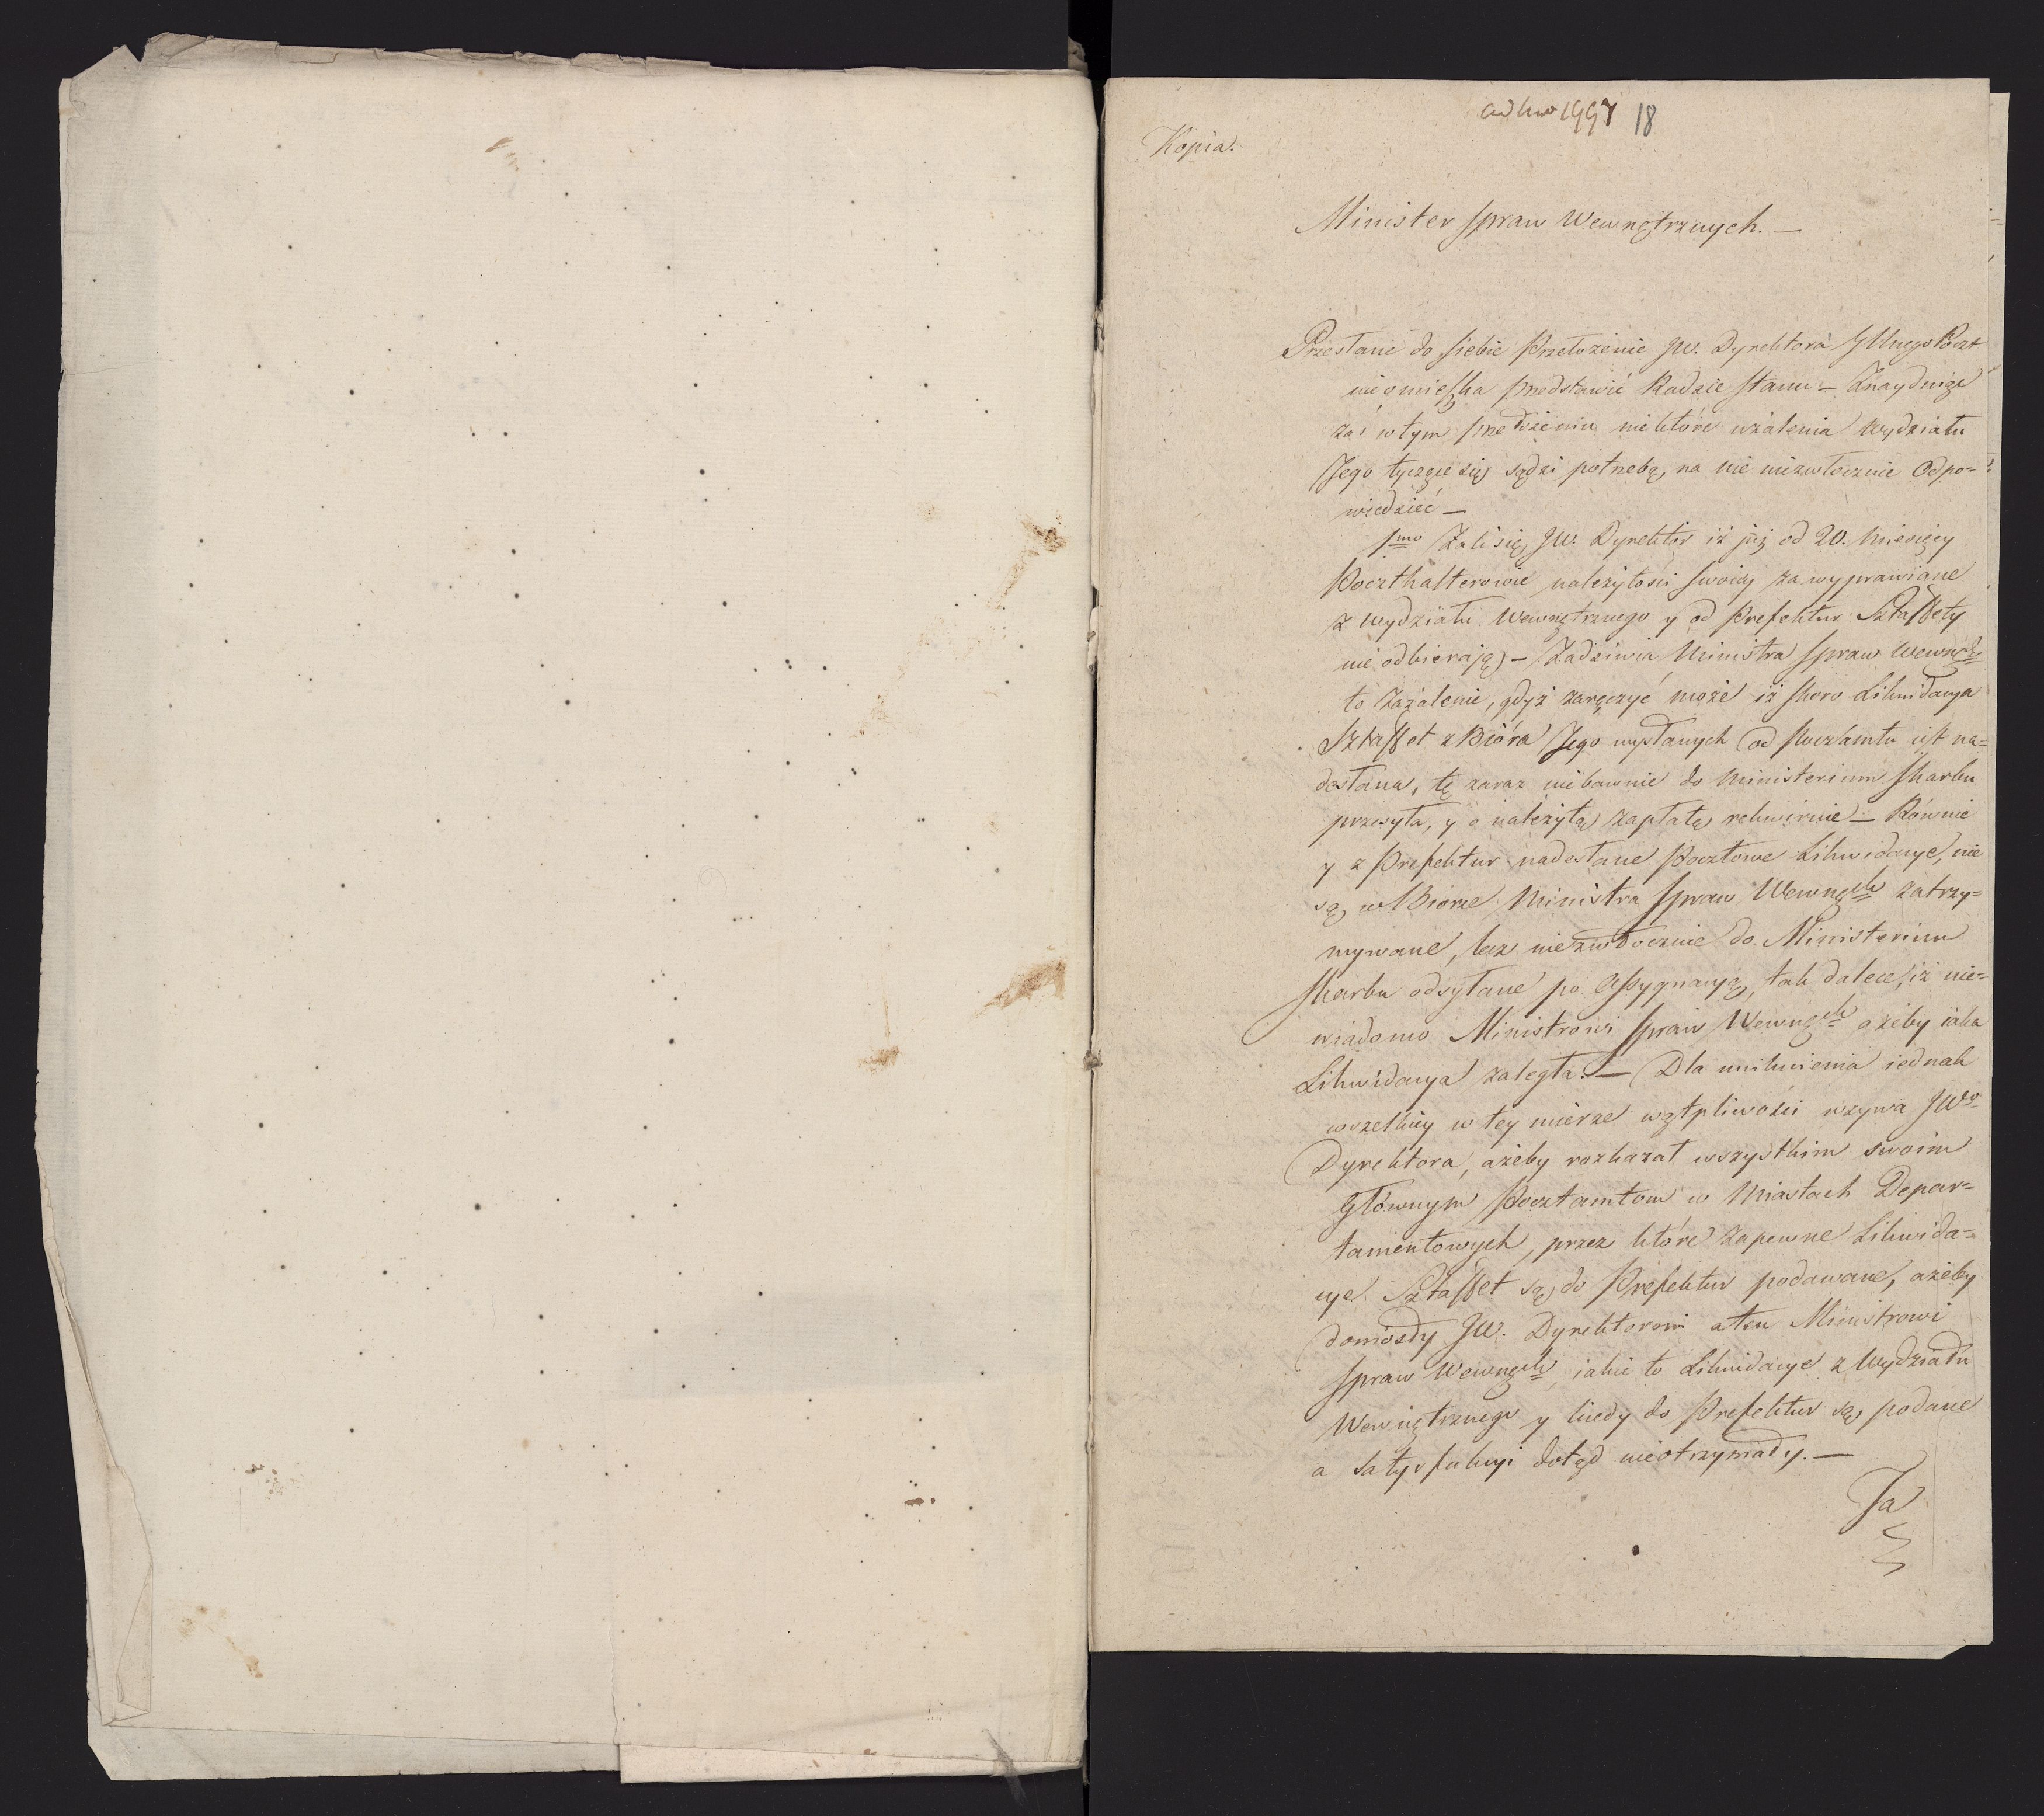 ad Nro 1997 18
Kopia.
Minister spraw Wewnętrznych. —
Przesłane do siebie Przełożenie JW. Dyrektora Gllnego Poczt
nieomieszka przedstawić Radzie Stanu — Znayduiąc
zaś w tym przełożeniu niektóre użalenia Wydziału
Jego tyczące się, sądzi potrzebą, na nie niezwłocznie Odpo=
wiedzieć —
1mo Żali się JW. Dyrektor iż już od 20. Miesięcy
Poczthalterowie należytości swoiey za wyprawiane
z Wydziału Wewnętrznego y od Prefektur Sztaffety
nie odbieraią — Zadziwia Ministra Spraw Wewnęch
to Zażalenie, gdyż zaręczyć może iż skoro Likwidacya
Sztaffet z Bióra Jego wysłanych od Pocztamtu iest na=
desłana, tę zaraz niebawnie do Ministerium Skarbu
przesyła, y o należytą zapłatę rekwiruie — Równie
y z Prefektur nadesłane Pocztowe Likwidacye, nie
są w Biorze Ministra Spraw Wewnęch zatrzy=
mywane, lecz niezwłocznie do Ministerium
Skarbu odsyłane po Assygnacyą, tak dalece, iż nie=
wiadomo Ministrowi Spraw Wewnęch ażeby iaka
Likwidacya zaległa. — Dla uniknienia iednak
wszelkiey w tey mierze wątpliwości wzywa JWo
Dyrektora, ażeby rozkazał wszystkim swoim
Głównym Pocztamtom w Miastach Depar=
tamentowych, przez które zapewne Likwida=
cye Sztaffet są do Prefektur podawane, ażeby
doniosły JW. Dyrektorowi a ten Ministrowi
Spraw Wewnęch, iakie to Likwidacye z Wydziału
Wewnętrznego y kiedy do Prefektur są podane
a satysfakcyi dotąd nieotrzymały. —
Ja